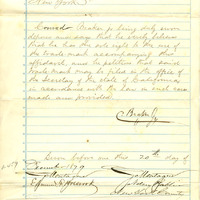 New York. S
Conrad Braker Jr being duly sworn
deposes and says that he verily believes
that he has the sole right to the use of
the trade mark accompanying this
affidavit, and he petition that said
trade mark may be filed in the office of
the Secretary of the State of California
in accordance with the Law in such case
made and provided.
Braker Jr
Sworn before me this 20th day of
December 1879